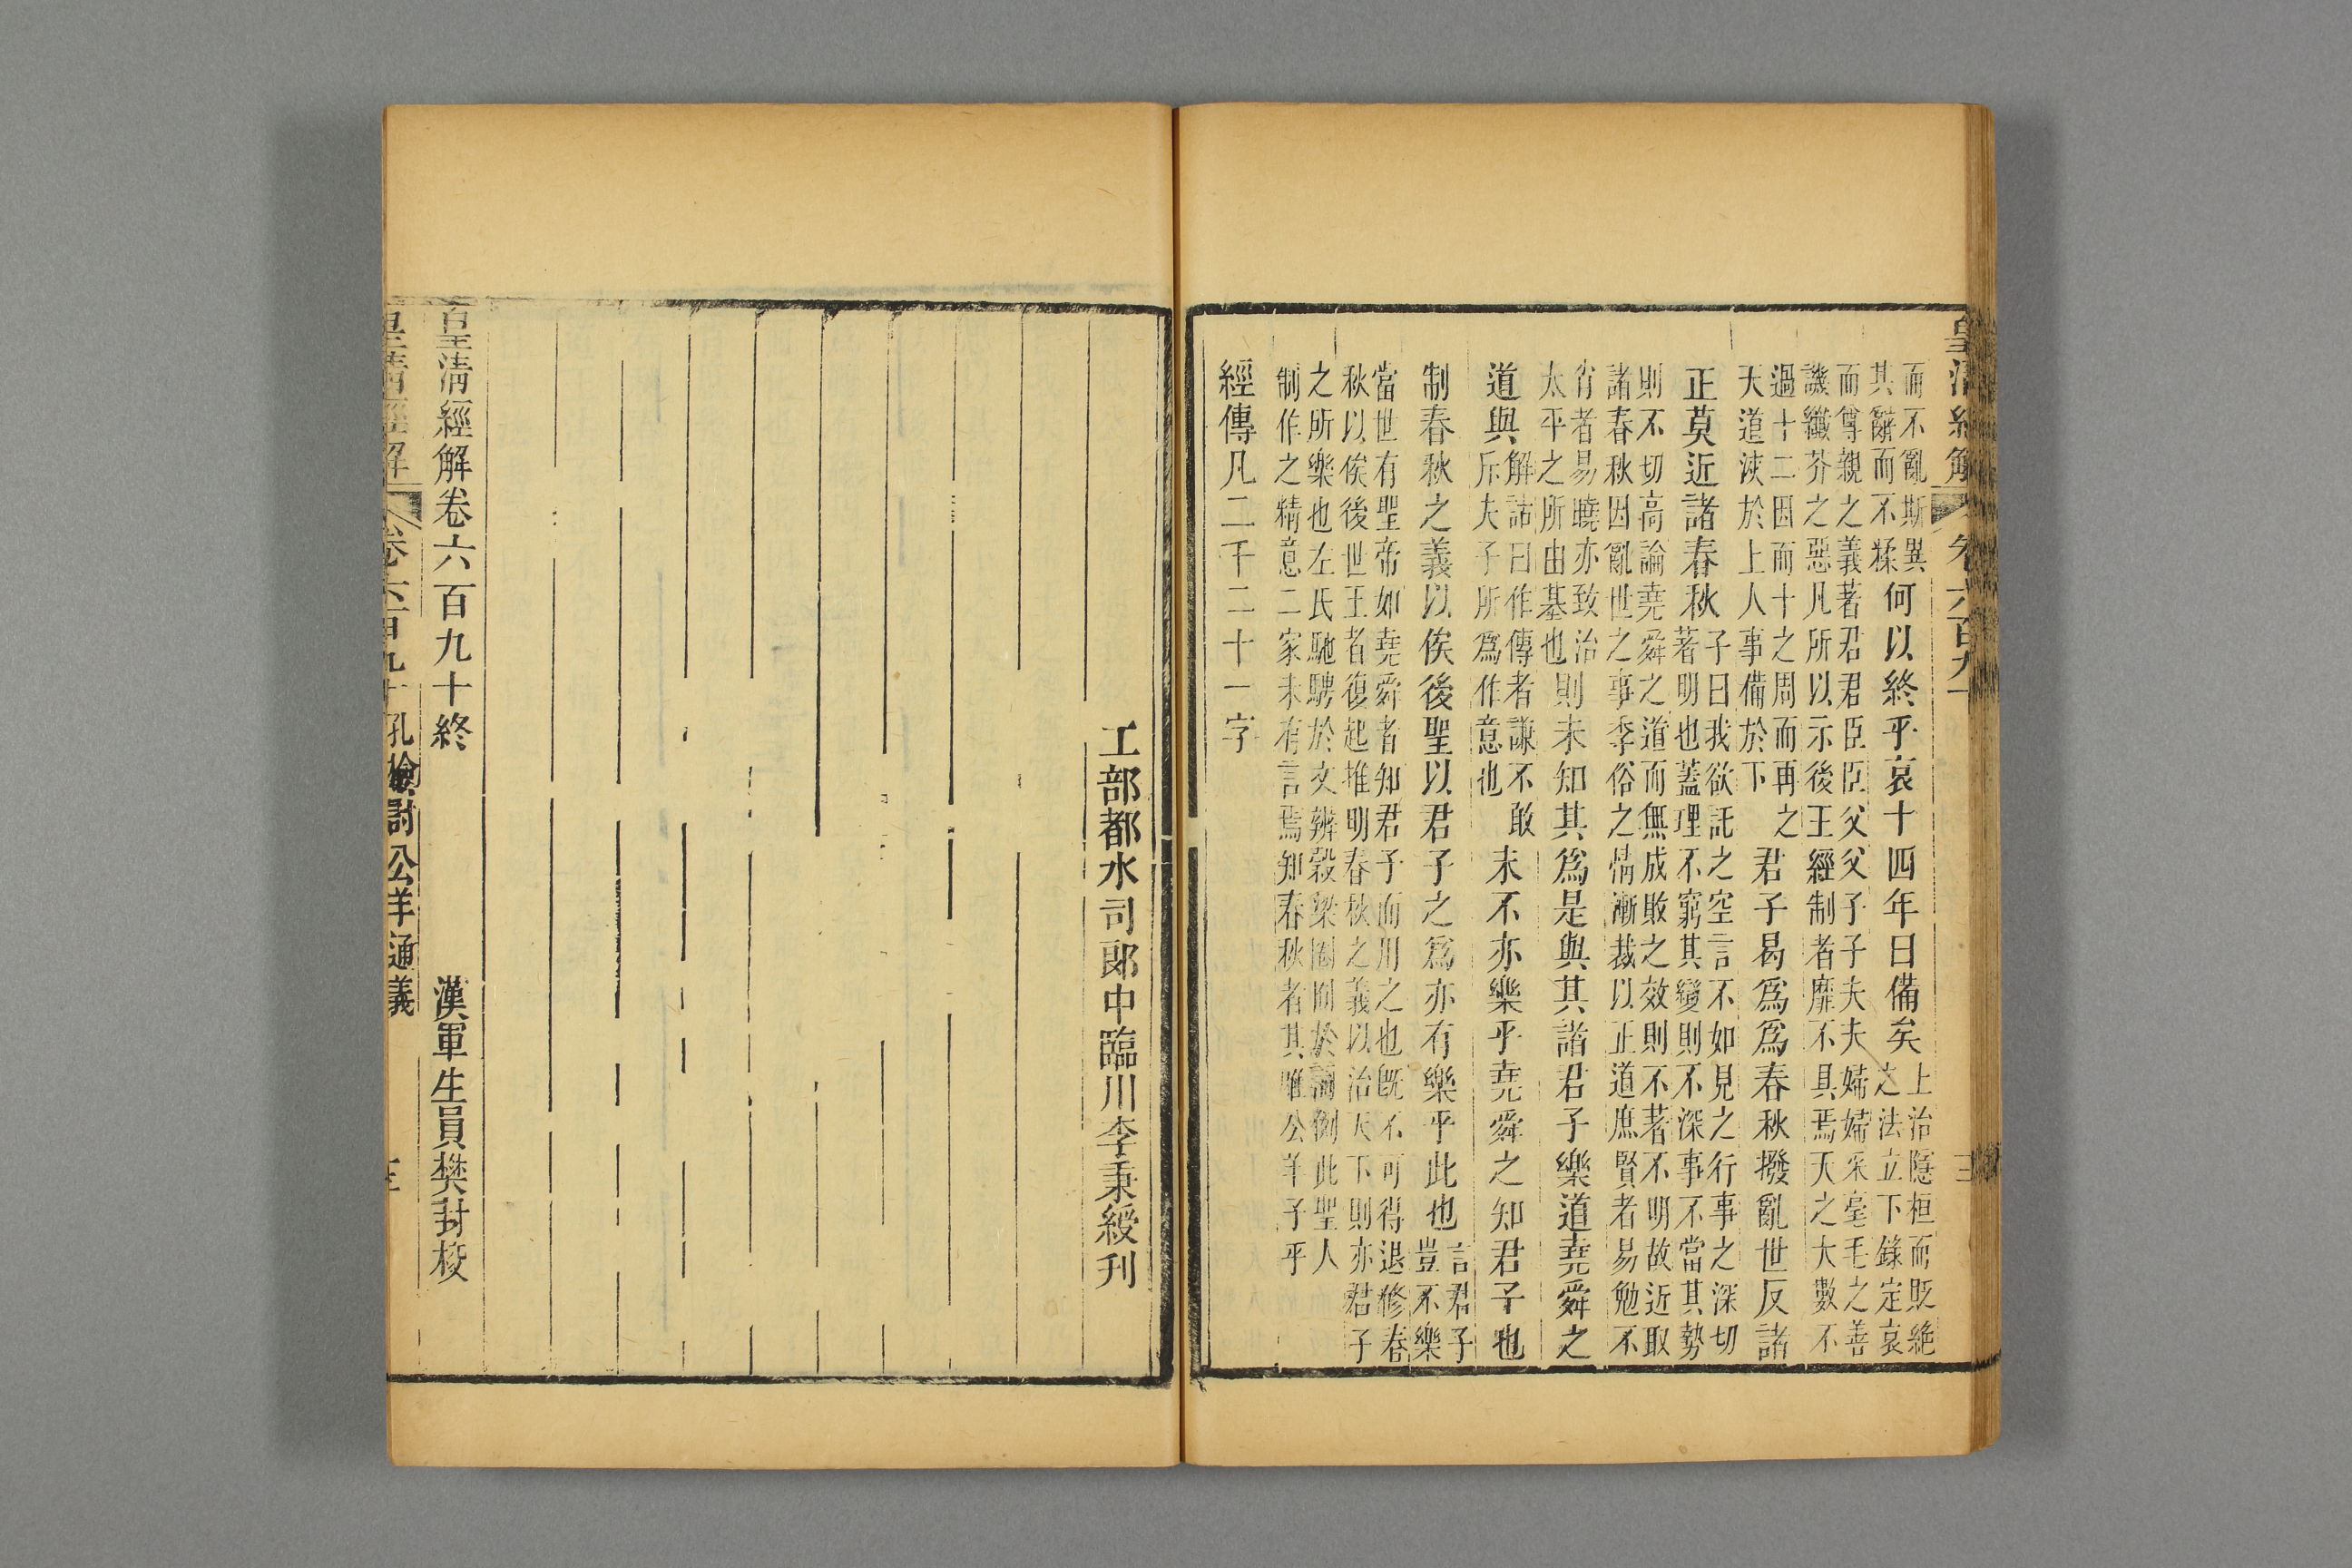 皇清經解 卷六百九十
而不亂斯異
其辭而不糅何以終乎哀十四年曰備矣上治隱桓而貶絕
之法立下錄定哀
而尊親之義著君君臣臣父父子子夫夫婦婦采毫毛之善
譏纖芥之惡凡所以示後王經制者靡不具焉天之大數不
過十二因而十之周而再之
天道浹於上人事備於下君子曷爲爲春秋撥亂世反諸
正莫近諸春秋子曰我欲託之空言不如見之行事之深切
著明也蓋理不窮其變則不深事不當其勢
則不切高論堯舜之道而無成敗之效則不著不明故近取
諸春秋因亂世之事季俗之情漸裁以正道庶賢者易勉不
肖者易曉亦致治
太平之所由基也則未知其爲是與其諸君子樂道堯舜之
道與解詁曰作傳者謙不敢
斥夫子所爲作意也末不亦樂乎堯舜之知君子也
制春秋之義以俟後聖以君子之爲亦有樂乎此也言君子
豈不樂
當世有聖帝如堯舜者知君子而用之也旣不可得退修春
秋以俟後世王者復起推明春秋之義以治天下則亦君子
之所樂也左氏馳騁於文辨穀梁圈囿於詞例此聖人
制作之精意二家未有言焉知春秋者其唯公羊子乎
經傳凡二千二十一字
工部都水司郞中臨川李秉綬刊
皇淸經解卷六百九十終 漢軍生員樊封校
皇淸經解 卷六百九十 孔檢討公羊通義